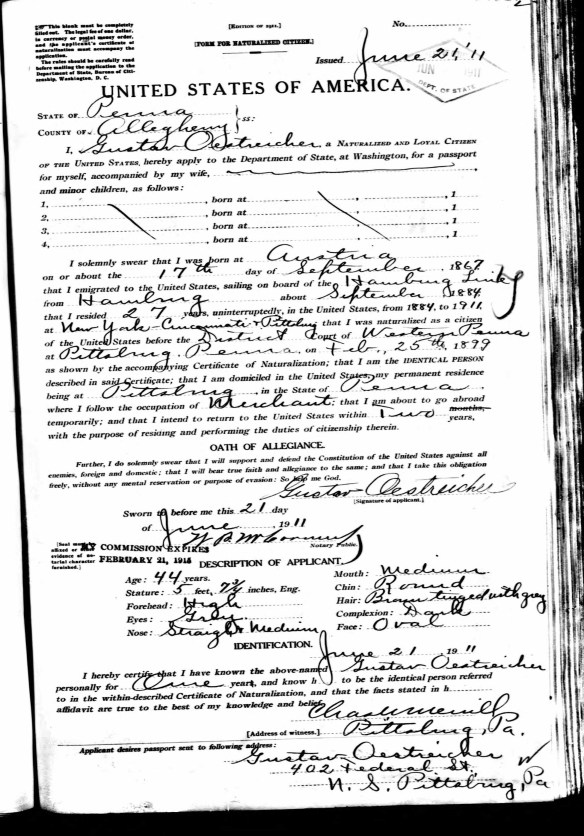 This blank must be completely
filled out. The legal fee of one dollar,
in currency or postal money order,
and the applicant's certificate of
naturalization must accompany the
application.
The rules should be carefully read
before mailing the application to the
Department of State, Bureau of Citi-
zenship, Washington, D. C.
[EDITION OF 1911.]
[FORM FOR NATURALIZED CITIZEN.]
No.
Issued June 21, '11
JUN 1911
DEPT. OF STATE
UNITED STATES OF AMERICA.
STATE OF Penna
COUNTY OF Allegheny ss:
I, Gustav Oestreicher, a NATURALIZED AND LOYAL CITIZEN
OF THE UNITED STATES, hereby apply to the Department of State, at Washington, for a passport
for myself, accompanied by my wife,
and minor children, as follows:
1. , born at , 1
2. , born at , 1
3. , born at , 1
4. , born at , 1
I solemnly swear that I was born at Austria
on or about the 17th day of September, 1867
that I emigrated to the United States, sailing on board the Hamburg Line
from Hamburg about September, 1884
that I resided 27 years, uninterruptedly, in the United States, from 1884 to 1911
at New York-Cincinnati & Pittsburg that I was naturalized as a citizen
of the United States before the District Court of Western Penna
at Pittsburg, Penna, on Feb., 25th, 1899
as shown by the accompanying Certificate of Naturalization; that I am the IDENTICAL PERSON
described in said Certificate; that I am domiciled in the United States, my permanent residence
being at Pittsburg, in the State of Penna,
where I follow the occupation of Merchant; that I am about to go abroad
temporarily; and that I intend to return to the United States within Two months, years,
with the purpose of residing and performing the duties of citizenship therein.
OATH OF ALLEGIANCE.
Further, I do solemnly swear that I will support and defend the Constitution of the United States against all
enemies, foreign and domestic; that I will bear true faith and allegiance to the same; and that I take this obligation
freely, without any mental reservation or purpose of evasion: So help me God.
Gustav Oestreicher
[Signature of applicant.]
Sworn to before me this 21 day
of June, 1911
Notary Public.
MY COMMISSION EXPIRES
FEBRUARY 21, 1915
DESCRIPTION OF APPLICANT.
Age: 44 years.
Stature: 5 feet, 7¾ inches, Eng.
Forehead: High
Eyes: Grey
Nose: Straight Medium
Mouth: Medium
Chin: Round
Hair: Brown tinged with grey
Complexion: Dark
Face: Oval
IDENTIFICATION.
June 21, 1911
I hereby certify that I have known the above-named Gustav Oestreicher
personally for One years, and know h to be the identical person referred
to in the within-described Certificate of Naturalization, and that the facts stated in h
affidavit are true to the best of my knowledge and belief.
[Address of witness.] Pittsburg, Pa.
Applicant desires passport sent to following address:
Gustav Oestreicher
402 Federal St.
N. S. Pittsburg, Pa